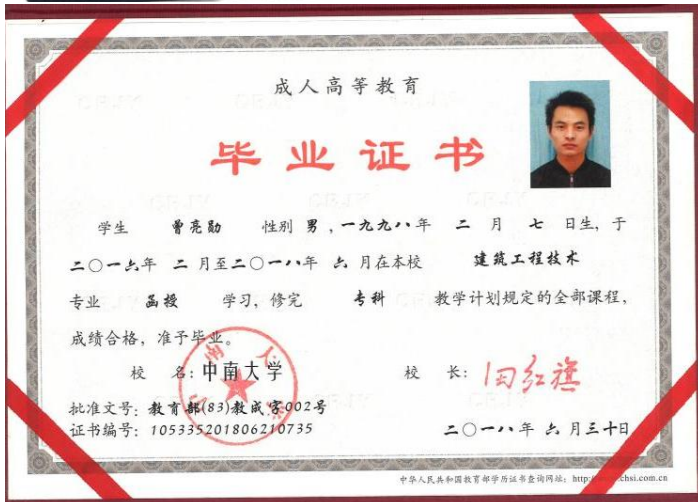 成人高等教育
毕业证书
学生 曾亮勋 性别 男，一九九八年 二 月 七 日生，于
二〇一六年 二 月至二〇一八年 六 月在本校 建筑工程技术
专业 函授 学习，修完 专科 教学计划规定的全部课程，
成绩合格，准予毕业。
校 名：中南大学 校 长：田红旗
批准文号：教育部(83)教成字002号
证书编号：105335201806210735 二〇一八年 六 月三十日
中华人民共和国教育部学历证书查询网址：http chsi.com.cn